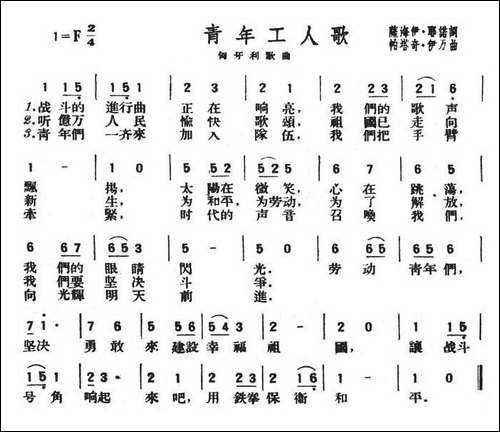 1=F 2/4
青年工人歌
匈牙利歌曲
薩海伊·耶诺詞
帕塔奇·伊万曲
1 15 | 151 | 1 2 | 3 2 | 1 2 | 21 6 |
1.战斗的 進行曲 正在 响亮, 我們的 歌声
2.听億万 人民 愉快 歌頌, 祖國已 走向
3.青年們 一齐來 加入 隊伍, 我們把 手臂
1 - | 1 0 | 5 52 | 52 5 | 6 7 | 6 5 |
飄 揚, 太陽在 微笑, 心在 跳蕩,
新 生, 为和平, 为劳动, 为了 解放,
牽 緊, 时代的 声音 召喚 我們,
6 67 | 653 | 5 - | 5 0 | 2 0 | 65 6 |
我們的 眼睛 閃 光. 劳动 青年們,
我們要 坚决 斗 爭.
向光輝 明天 前 進.
71· | 2 3 | 5 56 | 543 | 2 - | 2 0 | 1 15 |
坚决 勇敢 來建設 幸福 祖 國, 讓战斗
151 | 23· | 1 2 | 3 23 | 2 16 | 1 - | 1 0 ||
号角 响起 來吧, 用鉄拳 保衛 和 平.